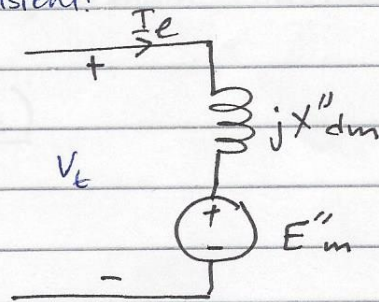 Ie
+
jX"dm
Vt
+
-
E"m
-